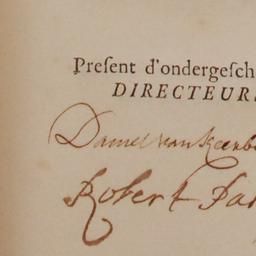 Preſent d'ondergeſch
DIRECTEUR
Daniel van
Robert